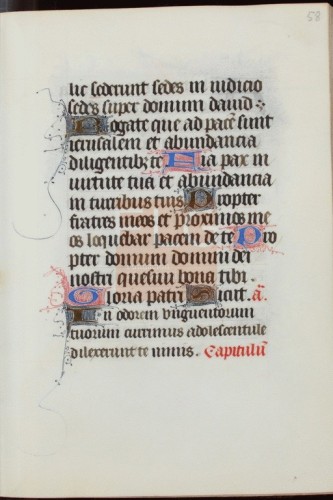 58
lic sederunt sedes in iudicio
sedes super domum dauid
Rogate que ad pacē sunt
ierusalem et abundancia
diligentib; te Fiat pax in
uirtute tua et abundancia
in turribus tuis Propter
fratres meos et proximos me
os loquebar pacem de te Pro
pter domum domini dei
nostri quesiui bona tibi.
Gloria patri Sicut. a.
In odorem unguentorum
tuorum currimus adolescentule
dilexerunt te nimis. Capitulū